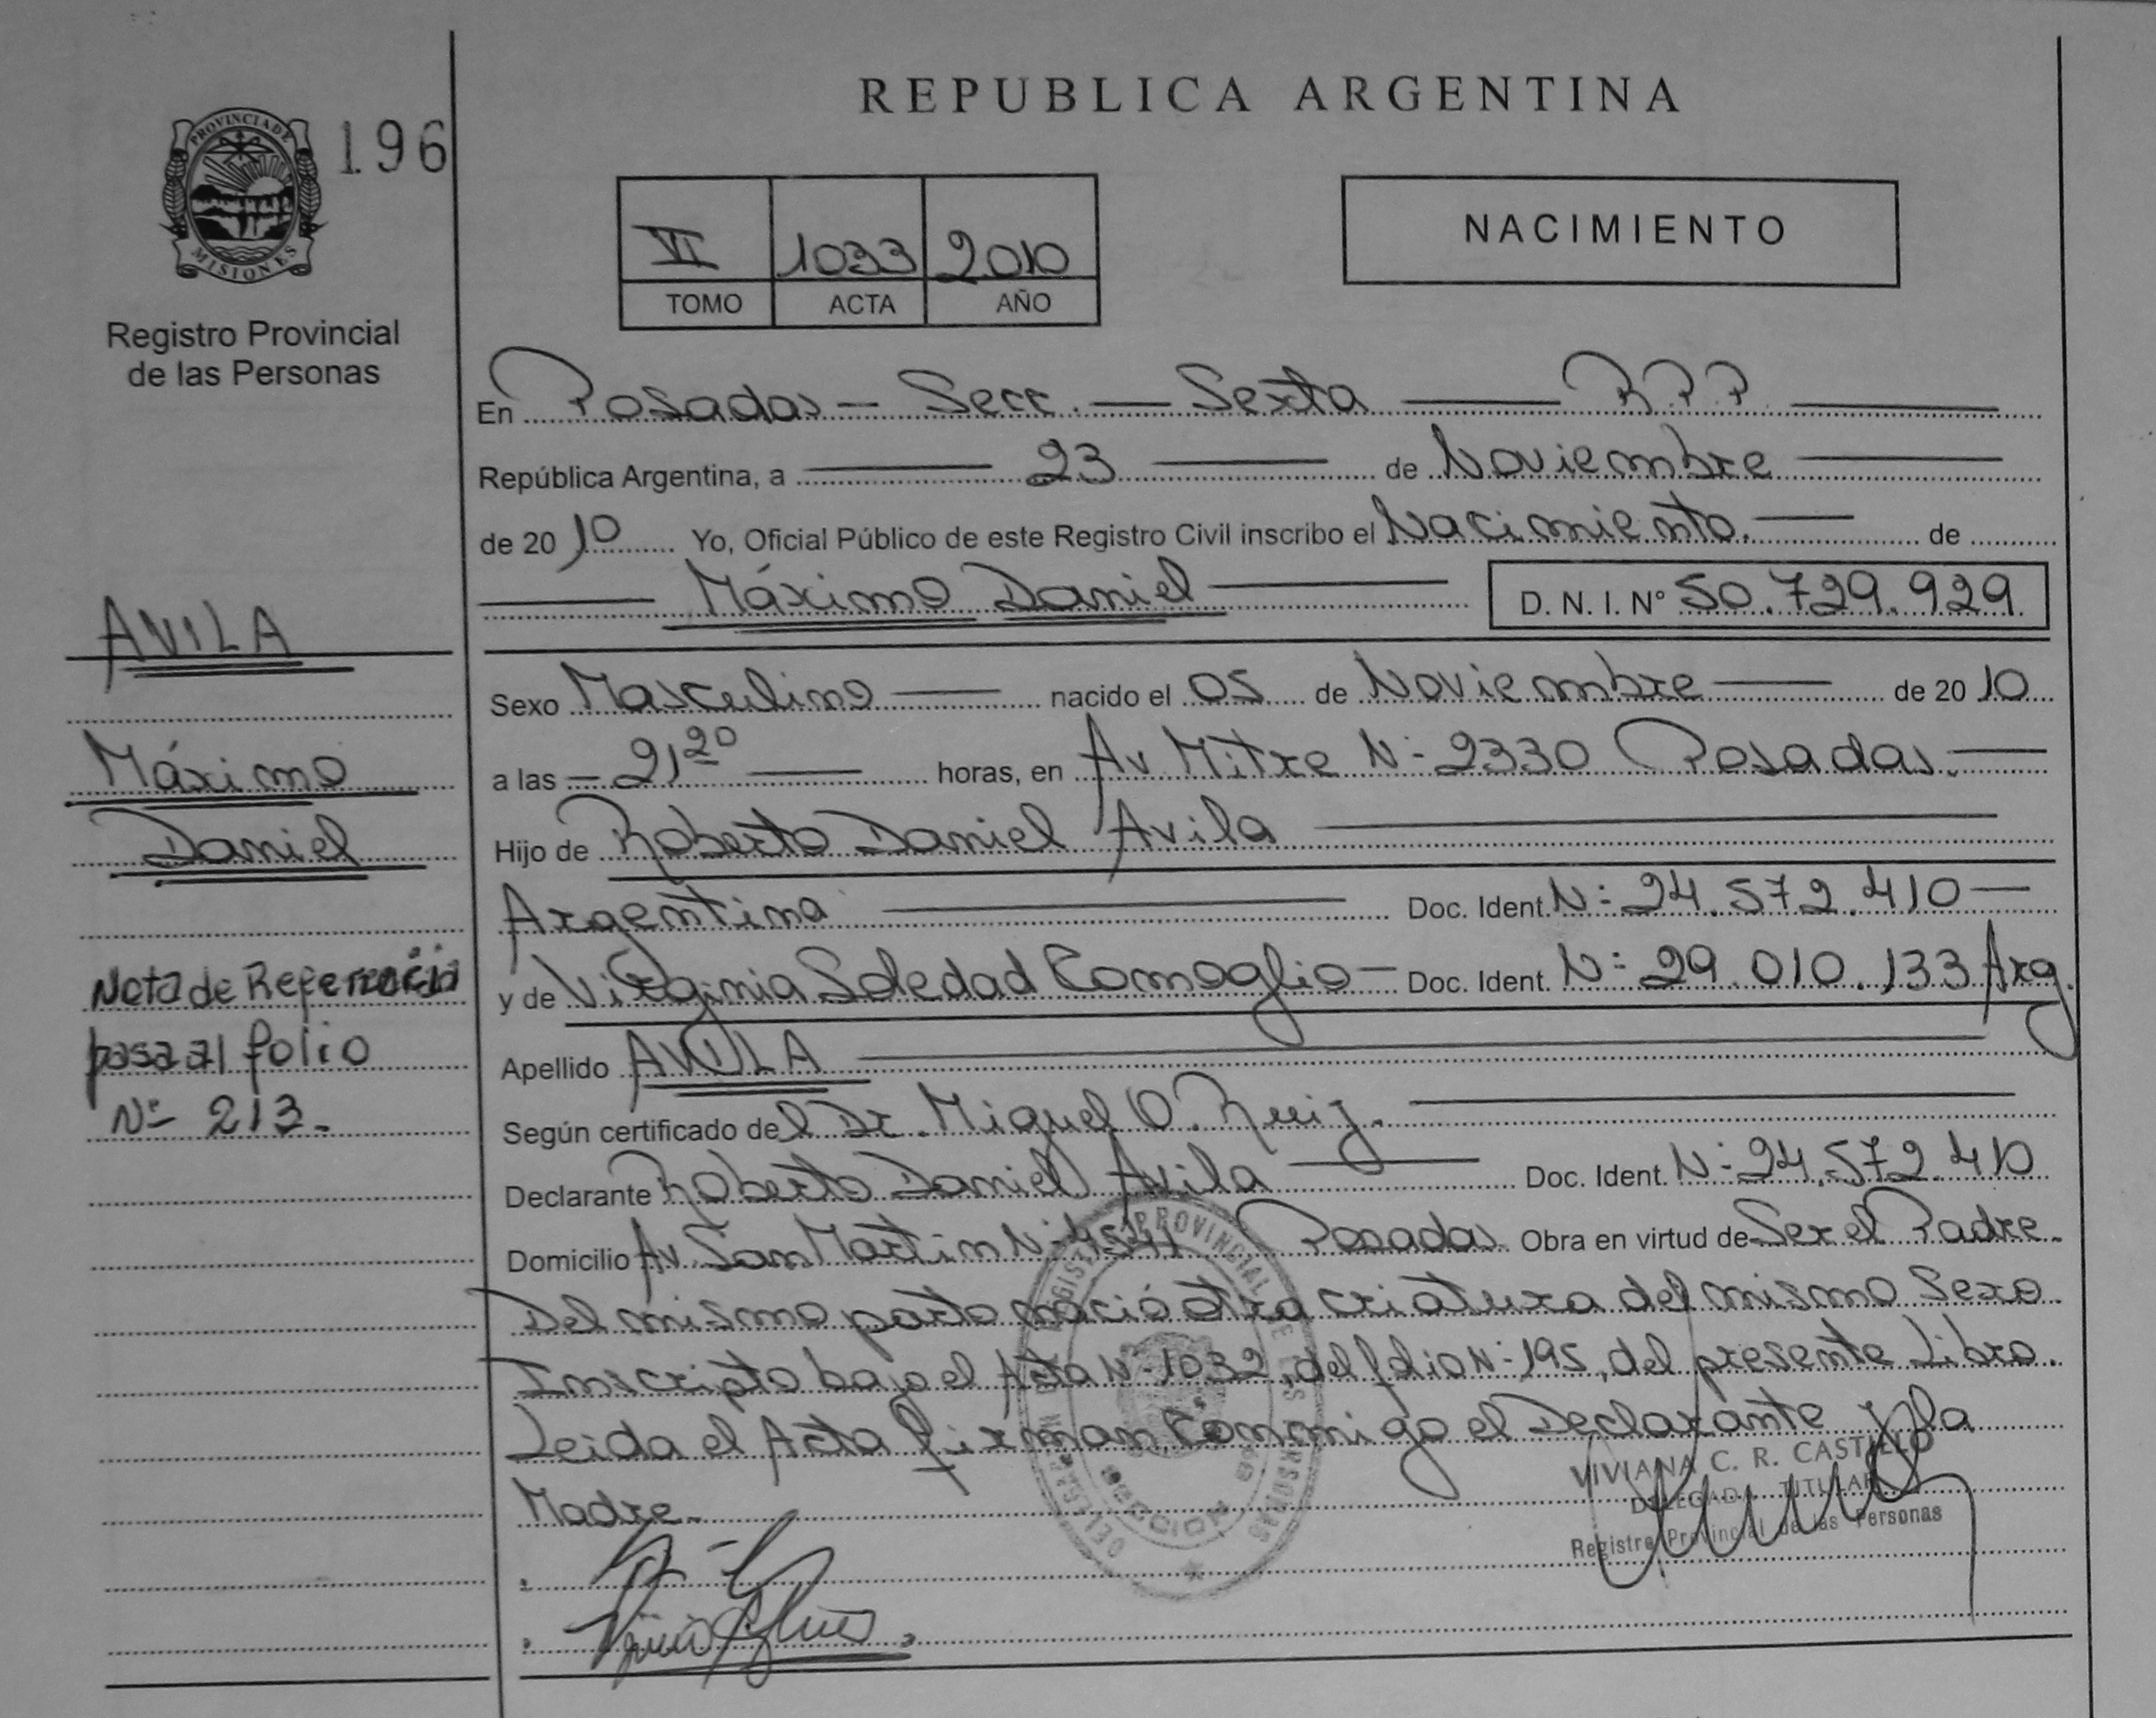 REPUBLICA ARGENTINA
PROVINCIA DE
MISIONES
196
Registro Provincial
de las Personas
VI 1033 2010
TOMO ACTA AÑO
NACIMIENTO
En Posadas - Secc. - Sexta R.P.P.
República Argentina, a 23 de Noviembre
de 20 10 Yo, Oficial Público de este Registro Civil inscribo el Nacimiento. de
Máximo Daniel D. N. I. Nº 50.729.929
AVILA
Máximo
Daniel
Nota de Referencia
pasa al folio
Nº 213.
Sexo Masculino nacido el 05 de Noviembre de 20 10
a las 21 20 horas, en Av. Mitre Nº 2330 Posadas.
Hijo de Roberto Daniel Avila
Argentina Doc. Ident. Nº 24.572.410
y de Virginia Soledad Comoglio Doc. Ident. Nº 29.010.133 Arg.
Apellido AVILA
Según certificado del Dr. Miguel O. Ruiz.
Declarante Roberto Daniel Avila Doc. Ident. Nº 24.572.410
Domicilio Av. San Martin Nº Posadas Obra en virtud de Ser el Padre.
Del mismo parto nació otra criatura del mismo Sexo
Inscripto bajo el Acta Nº 1032, del folio Nº 195, del presente Libro.
Leida el Acta firman Conmigo el Declarante y la
Madre.
VIVIANA C. R. CASTILLO
DELEGADA TITULAR
Registro Provincial de las Personas